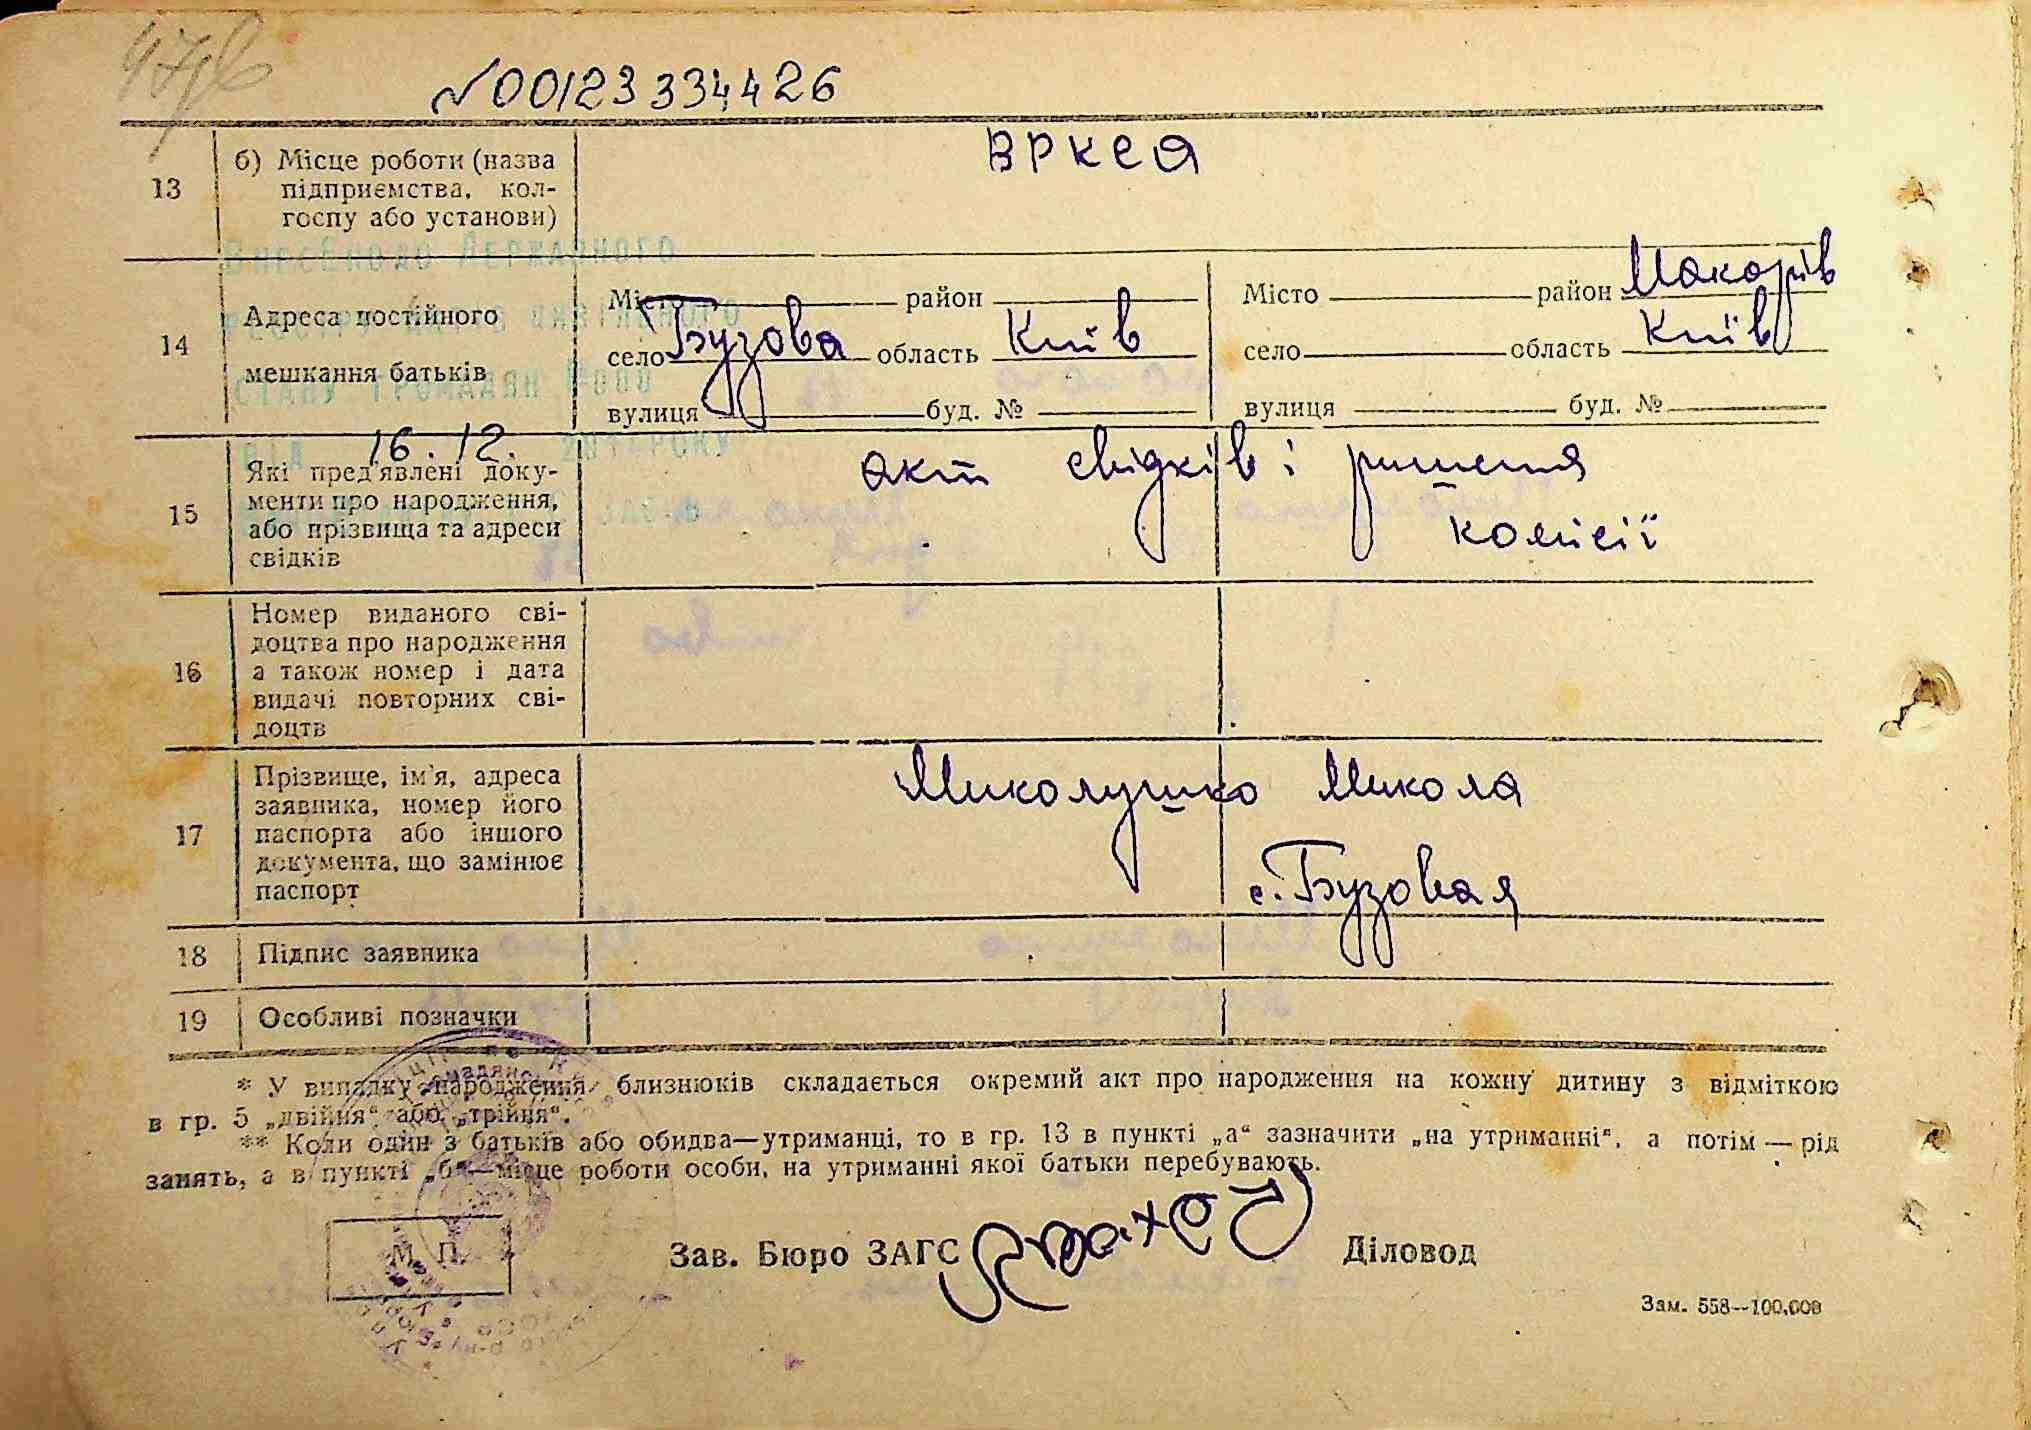 №00123334426
вркея
13 б) Місце роботи (назва
підприємства, кол-
госпу або установи)
Внесено до Державного
14 Адреса постійного
мешкання батьків
Місто район Місто район Макарів
село Бузова область Київ село область Київ
вулиця буд. № вулиця буд. №
стану громадян
від 16.12. року
15 Які пред'явлені доку-
менти про народження,
або прізвища та адреси
свідків
акт свідків і рішення
комісії
16 Номер виданого сві-
доцтва про народження
а також номер і дата
видачі повторних сві-
доцтв
17 Прізвище, ім'я, адреса
заявника, номер його
паспорта або іншого
документа, що замінює
паспорт
Миколушко Микола
с. Бузовая
18 Підпис заявника
19 Особливі позначки
* У випадку народження близнюків складається окремий акт про народження на кожну дитину з відміткою
в гр. 5 „двійня“ або „трійня“.
** Коли один з батьків або обидва—утриманці, то в гр. 13 в пункті „а“ зазначити „на утриманні“, а потім — рід
занять, а в пункті „б“—місце роботи особи, на утриманні якої батьки перебувають.
М. П.
Зав. Бюро ЗАГС Діловод
Зам. 558—100.000